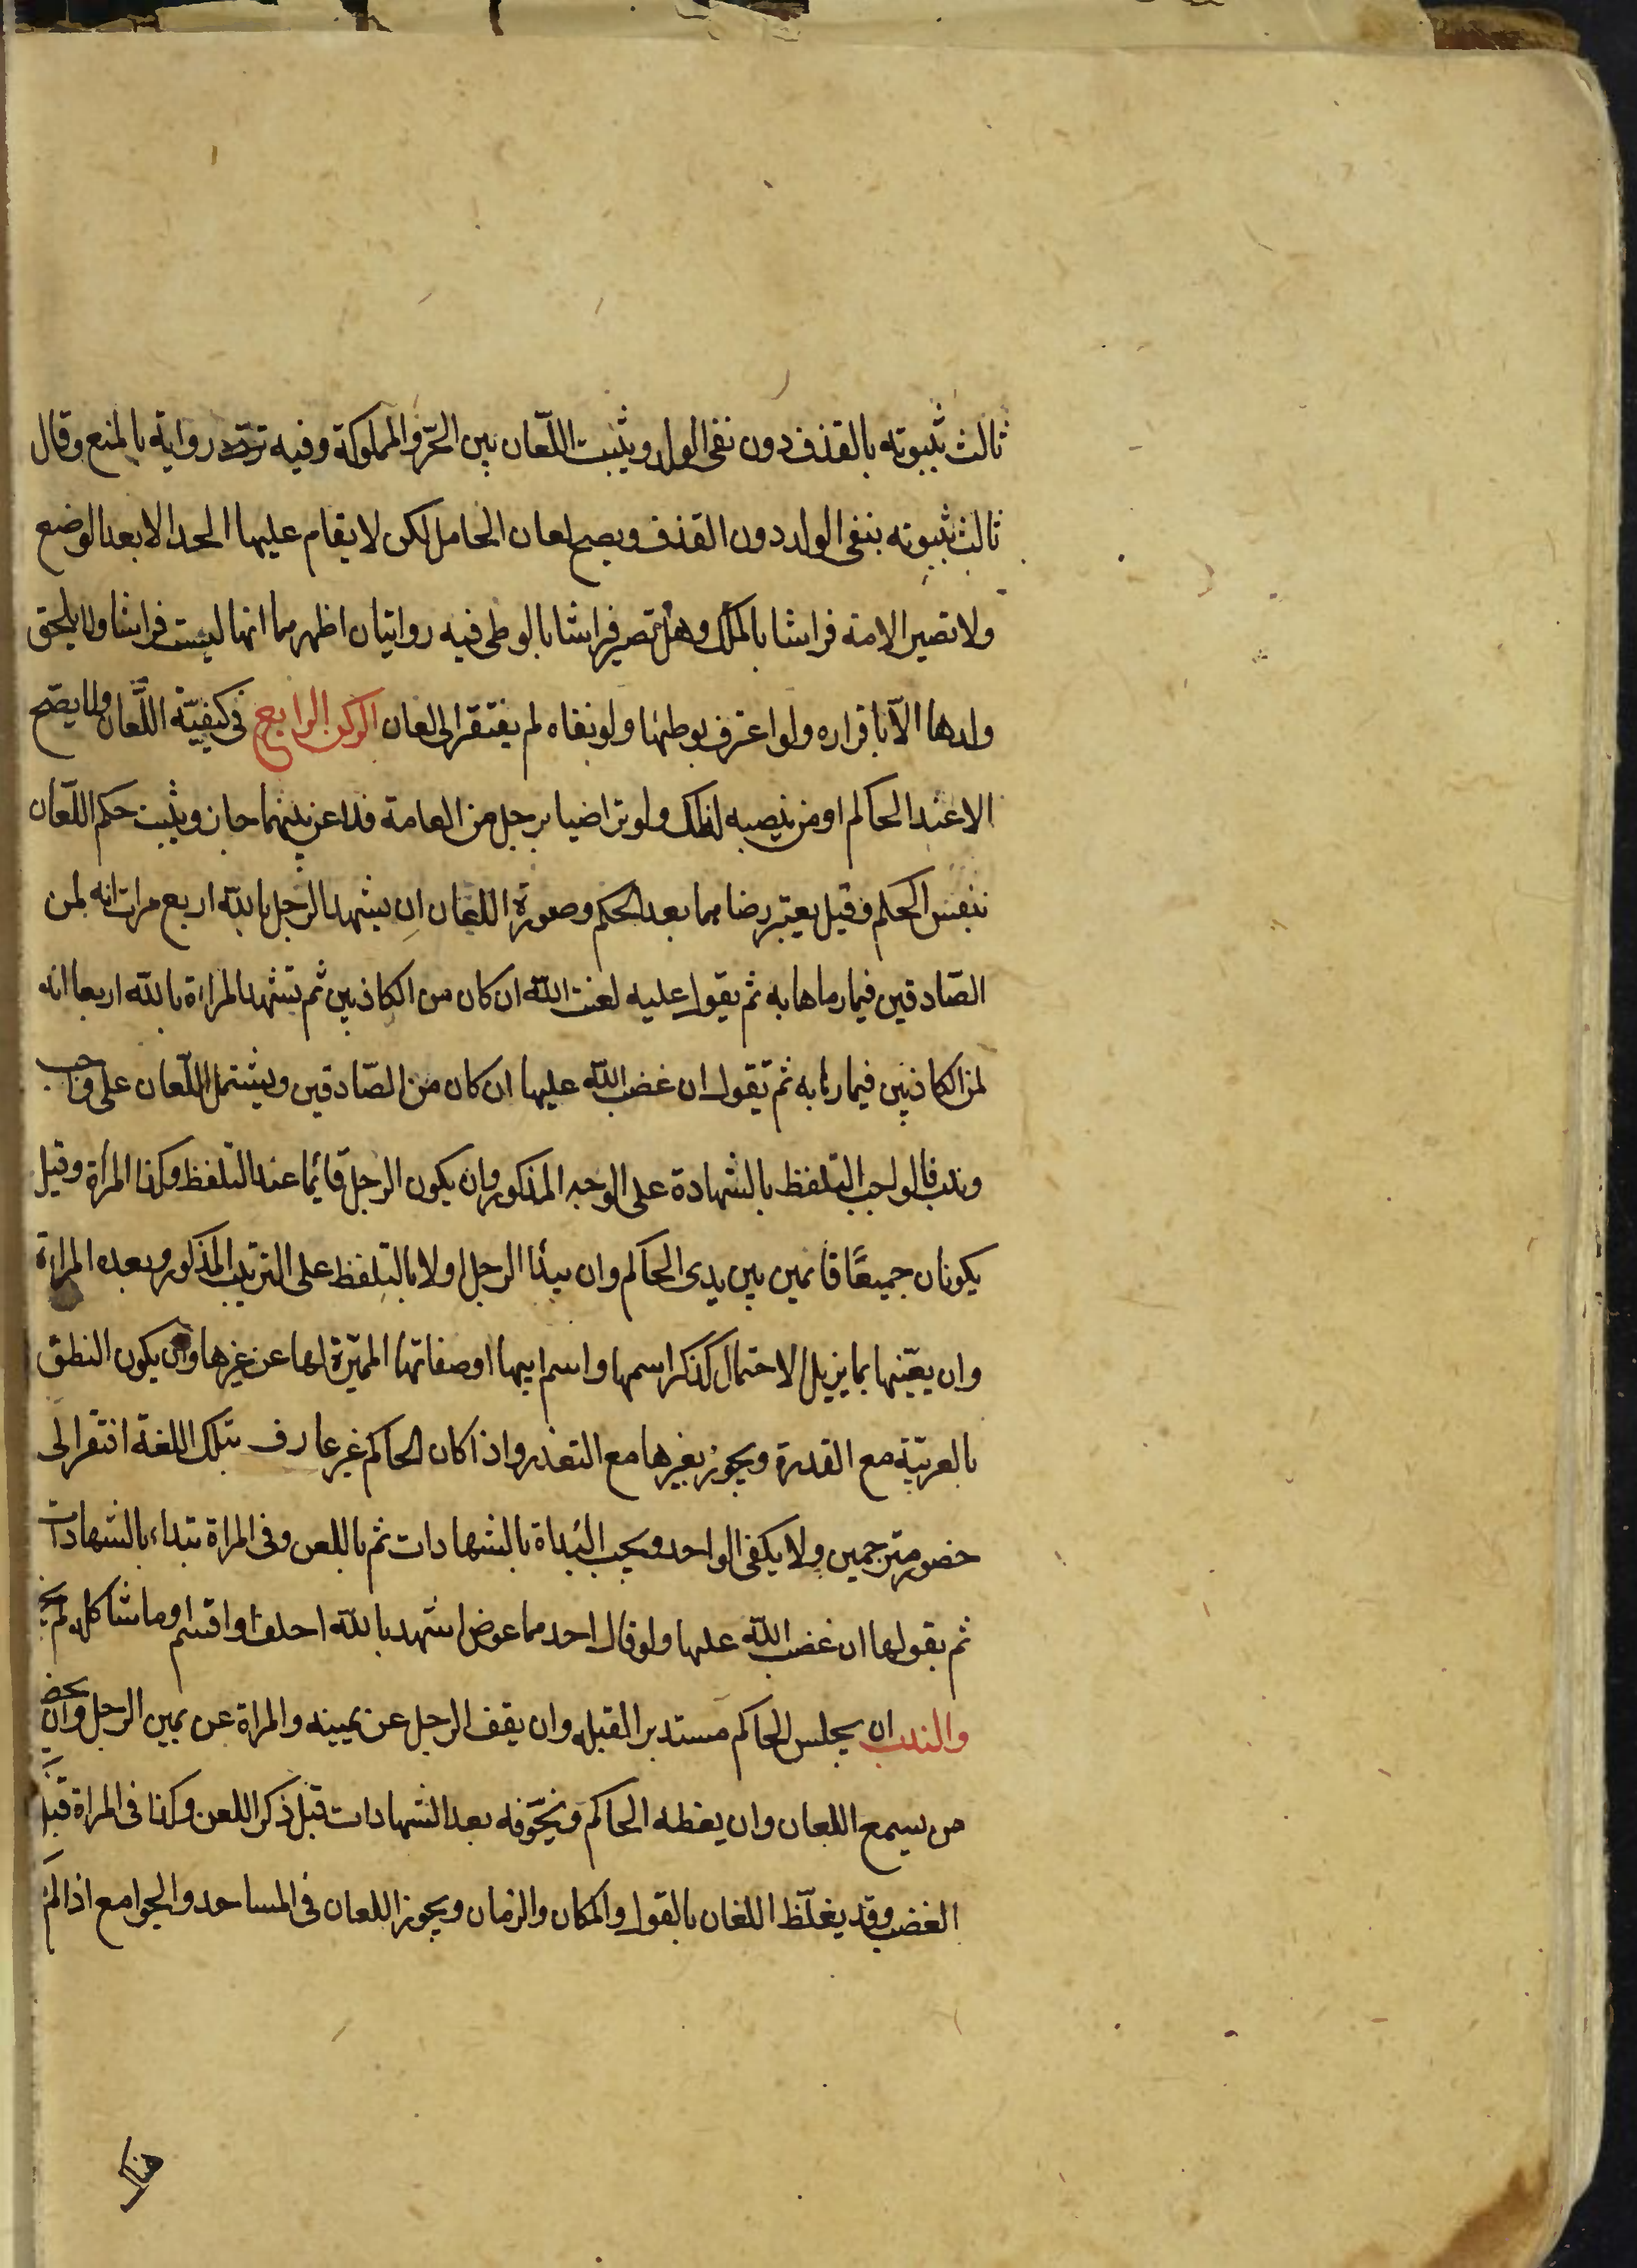 ثالث ثبوته بالقذف دون نفى الولد ويثبت اللّعان بين الحّر والمملوكة وفيه تردد رواية بالمنع وقال
ثالث بثبوته بنفى الولد دون القذف ويصح لعان الحامل لكن لا يقام عليها الحد الا بعد الوضع
ولا تصير الامة فراشا بالملك وهل تصير فراشا بالوطى فيه روايتان اظهرهما انها ليست فراشا ولا يلحق
ولدها الّا باقراره ولو اعترف بوطئها ولو نفاه لم يفتقر الى لعان الركن الرابع فى كيفيّة اللّعان ولا يصّح
الا عند الحاكم او من ينصبه لذلك ولو تراضيا برجل من العامة فلاعن بينهما جاز ويثبت حكم اللّعان
بنفس الحكم وقيل يعتبر رضاهما بعد الحكم وصورة اللعان ان يشهد الرجل بالله اربع مرات انه لمن
الصّادقين فيما رماها به ثم يقول عليه لعنت الله ان كان من الكاذبين ثم تشهد المراة بالله اربعا انه
لمن الكاذبين فيما رماها به ثم تقول ان غضب الله عليها ان كان من الصّادقين ويشتمل اللّعان على واجب
وندب فالواجب التلفظ بالشهادة على الوجه المذكور وان يكون الرجل قائما عند التلفظ وكذا المراة وقيل
يكونان جميعًا قائمين بين يدى الحاكم وان يبدا الرجل اولا بالتلفظ على الترتيب المذكور وبعده المراة
وان يعّينها بما يزيل الاحتمال كذكر اسمها واسم ابيها او صفاتها المميّزة لها عن غيرها وان يكون النطق
بالعربيّة مع القدرة ويجوز بغيرها مع التعذر واذا كان الحاكم غير عارف بتلك اللغة افتقر الى
حضور مترجمين ولا يكفى الواحد ويجب البداة بالشهادات ثم باللعن وفى المراة تبداء بالشهادات
ثم بقولها ان غضب الله عليها ولو قال احدهما عوض اشهد بالله احلف او اقسم او ما شاكله لم يجز
والندب ان يجلس الحاكم مستدبر القبلة وان يقف الرجل عن يمينه والمراة عن يمين الرجل وان يحضر
من يسمع اللعان وان يعظه الحاكم ويخّوفه بعد الشهادات قبل ذكر اللعن وكذا فى المراة قبل
الغضب وقد يغلّظ اللعان بالقول والمكان والزمان ويجوز اللعان فى المساجد والجوامع اذا لم